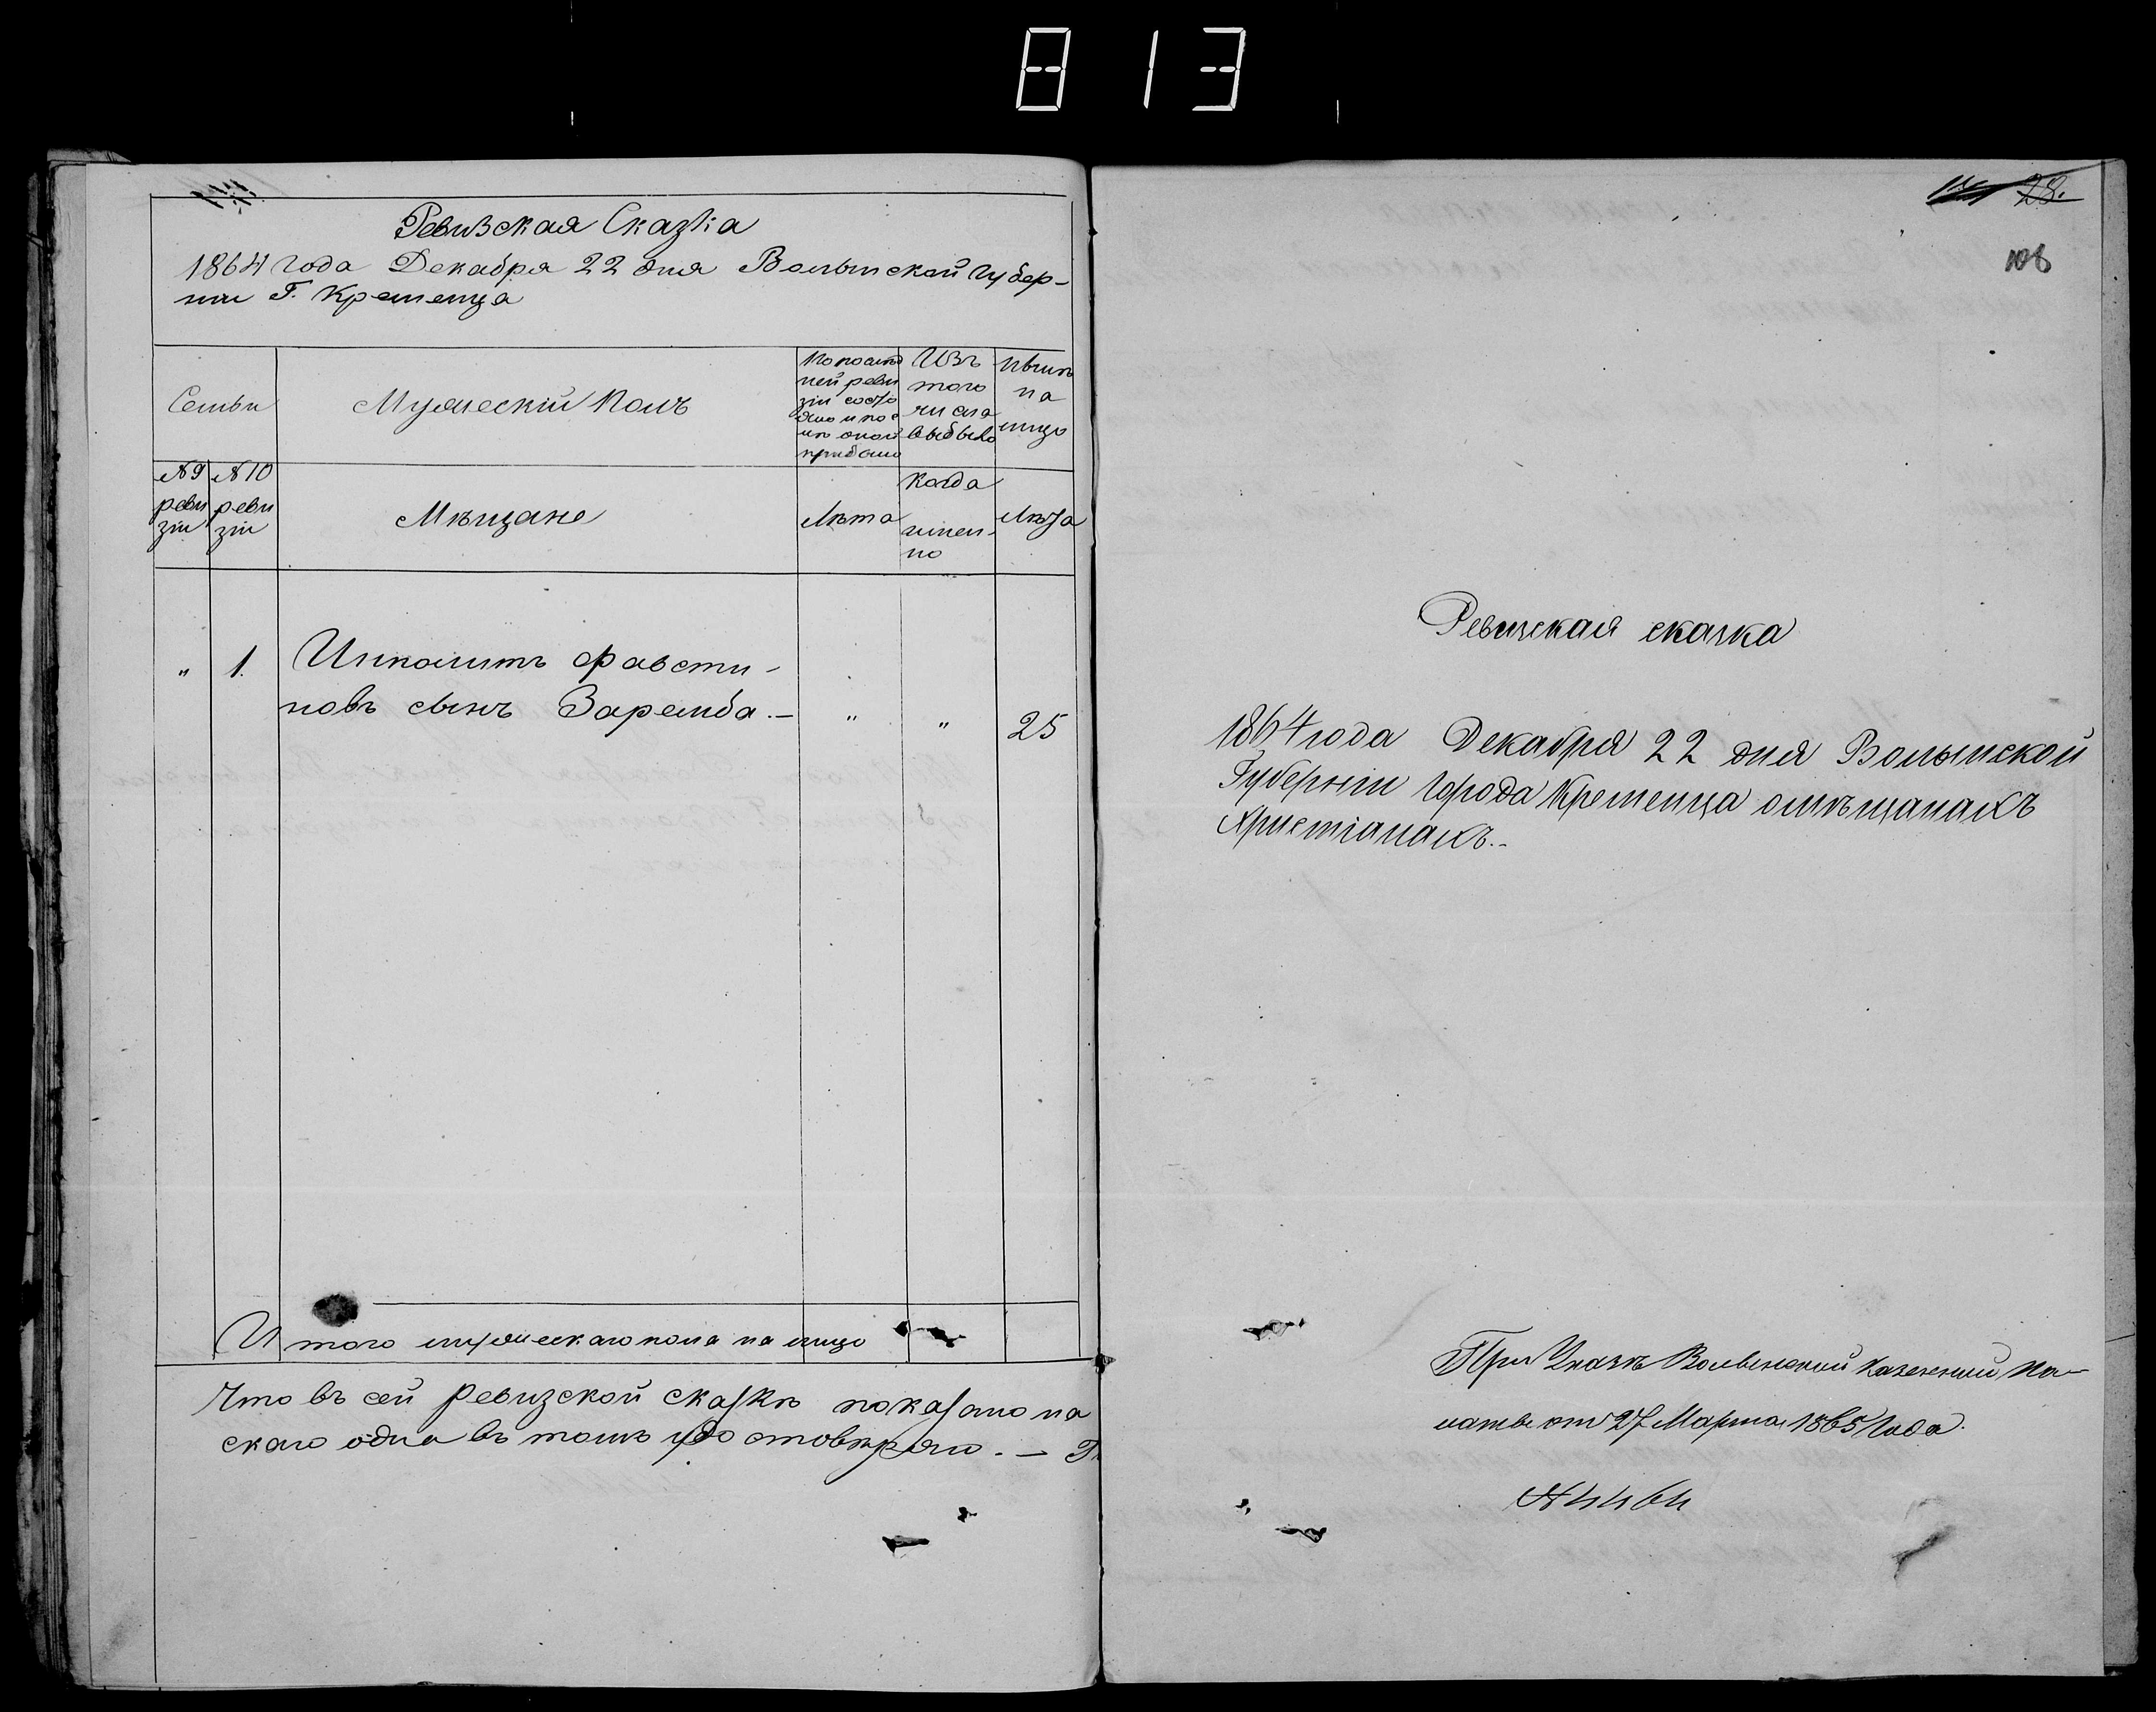 813
Ревизская Сказка
1864 года Декабря 22 дня Волынской губер-
нии Г. Кременца
Семьи
Мужескій Полъ
По послѣд
ней реви
зіи состо
яло и пос
лѣ оной
прибыло
Изъ
того
числа
выбыло
Нынѣ
на
лицо
№ 9
реви
зіи
№ 10
реви
зіи
Мѣщане
Лѣта
Когда
имен-
но
Лѣта
" 1. Ипполитъ Фавсти-
новъ сынъ Заремба. - " " 25
Итого мужескаго пола на лицо
Что въ сей ревизской сказкѣ показано на
скаго одна въ томъ удостовѣряю. -
28.
108
Ревизская сказка
1864 года Декабря 22 дня Волынской
Губерніи Города Кременца о мѣщанахъ
Христіанахъ. -
При Указѣ Волынской Казенной Па-
латы от 27 Марта 1865 Года.
№ 4464